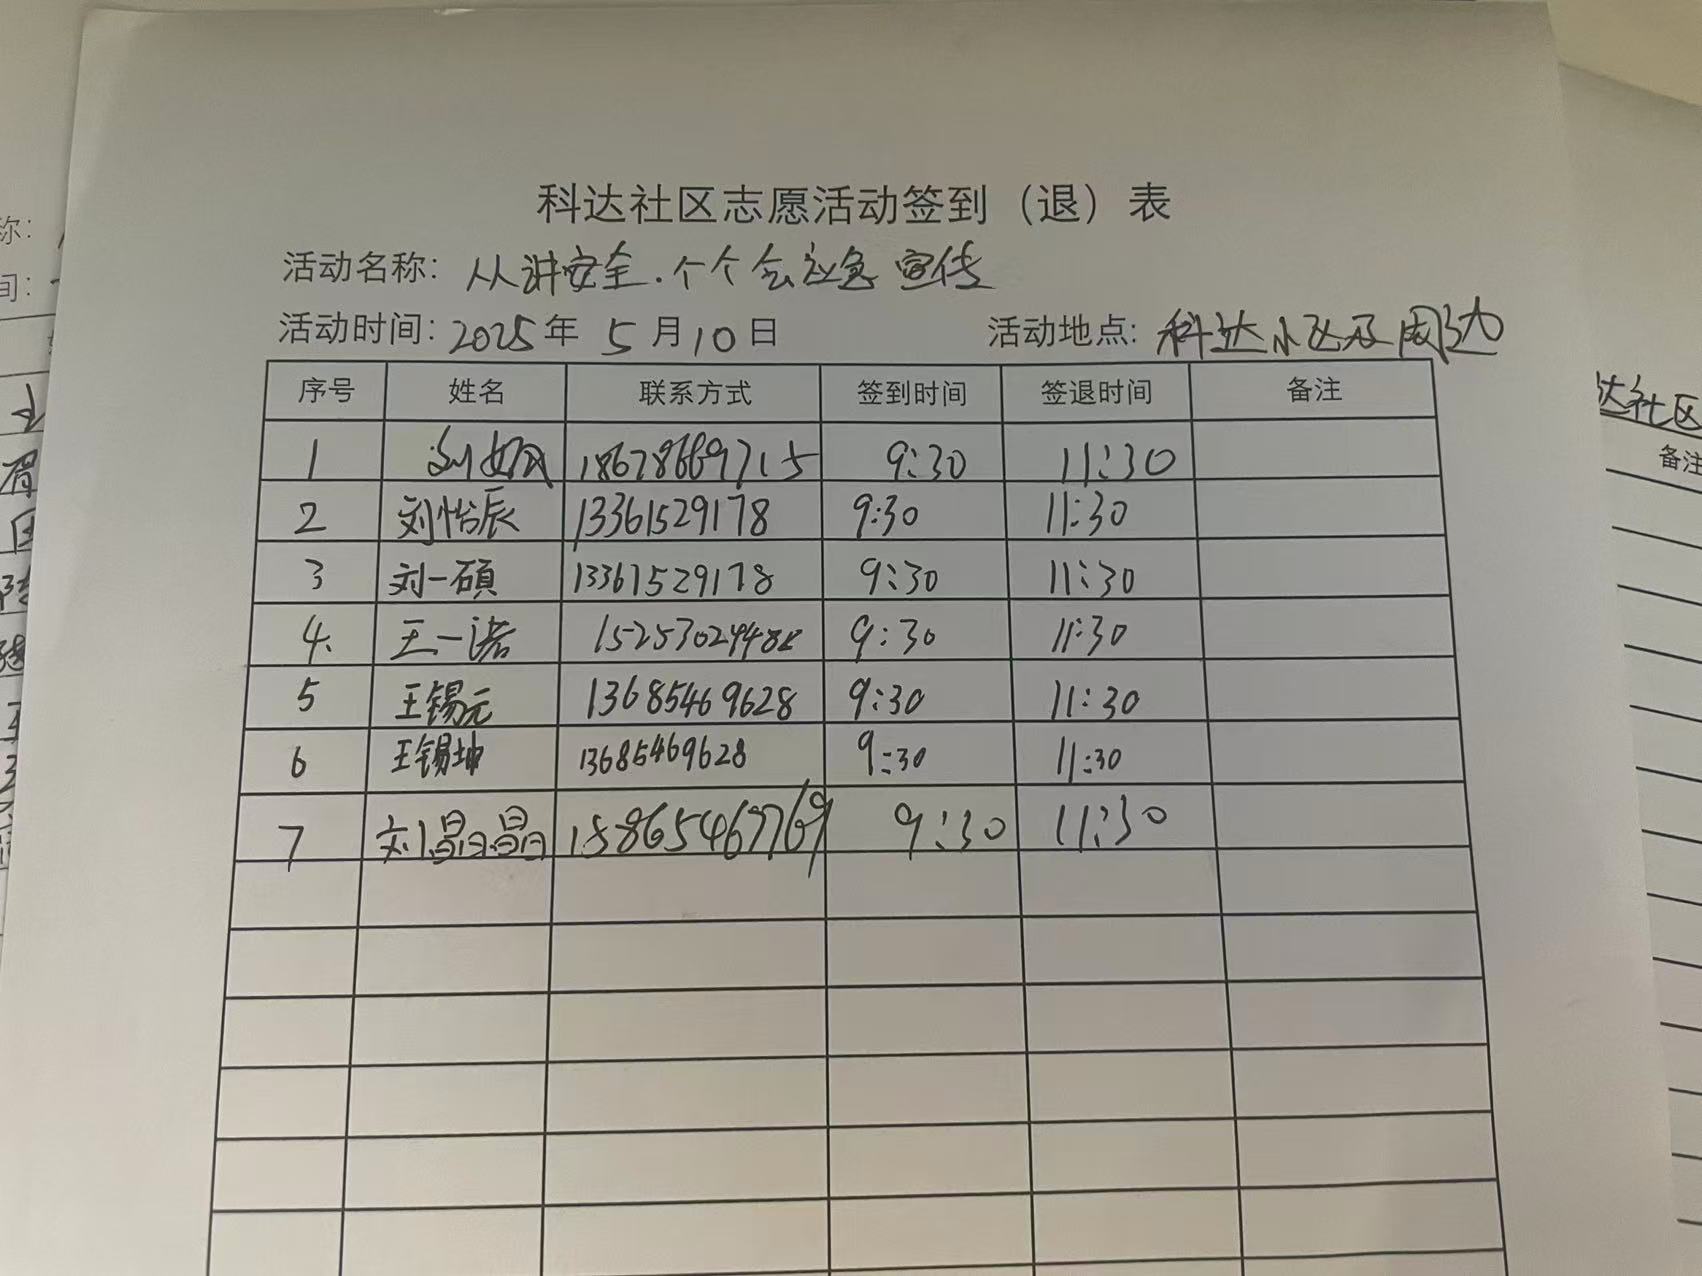 科达社区志愿活动签到（退）表
活动名称：从讲安全.个个会应急 宣传
活动时间：2025年 5月10日 活动地点：科达小区及周边
序号 姓名 联系方式 签到时间 签退时间 备注
1 刘 18678669715 9:30 11:30
2 刘怡辰 13361529178 9:30 11:30
3 刘一硕 13361529178 9:30 11:30
4. 王一诺 9:30 11:30
5 王锡元 13685469628 9:30 11:30
6 王锡坤 13685469628 9:30 11:30
7 刘晶晶 15865467769 9:30 11:30
称：
间：
达社区
备注